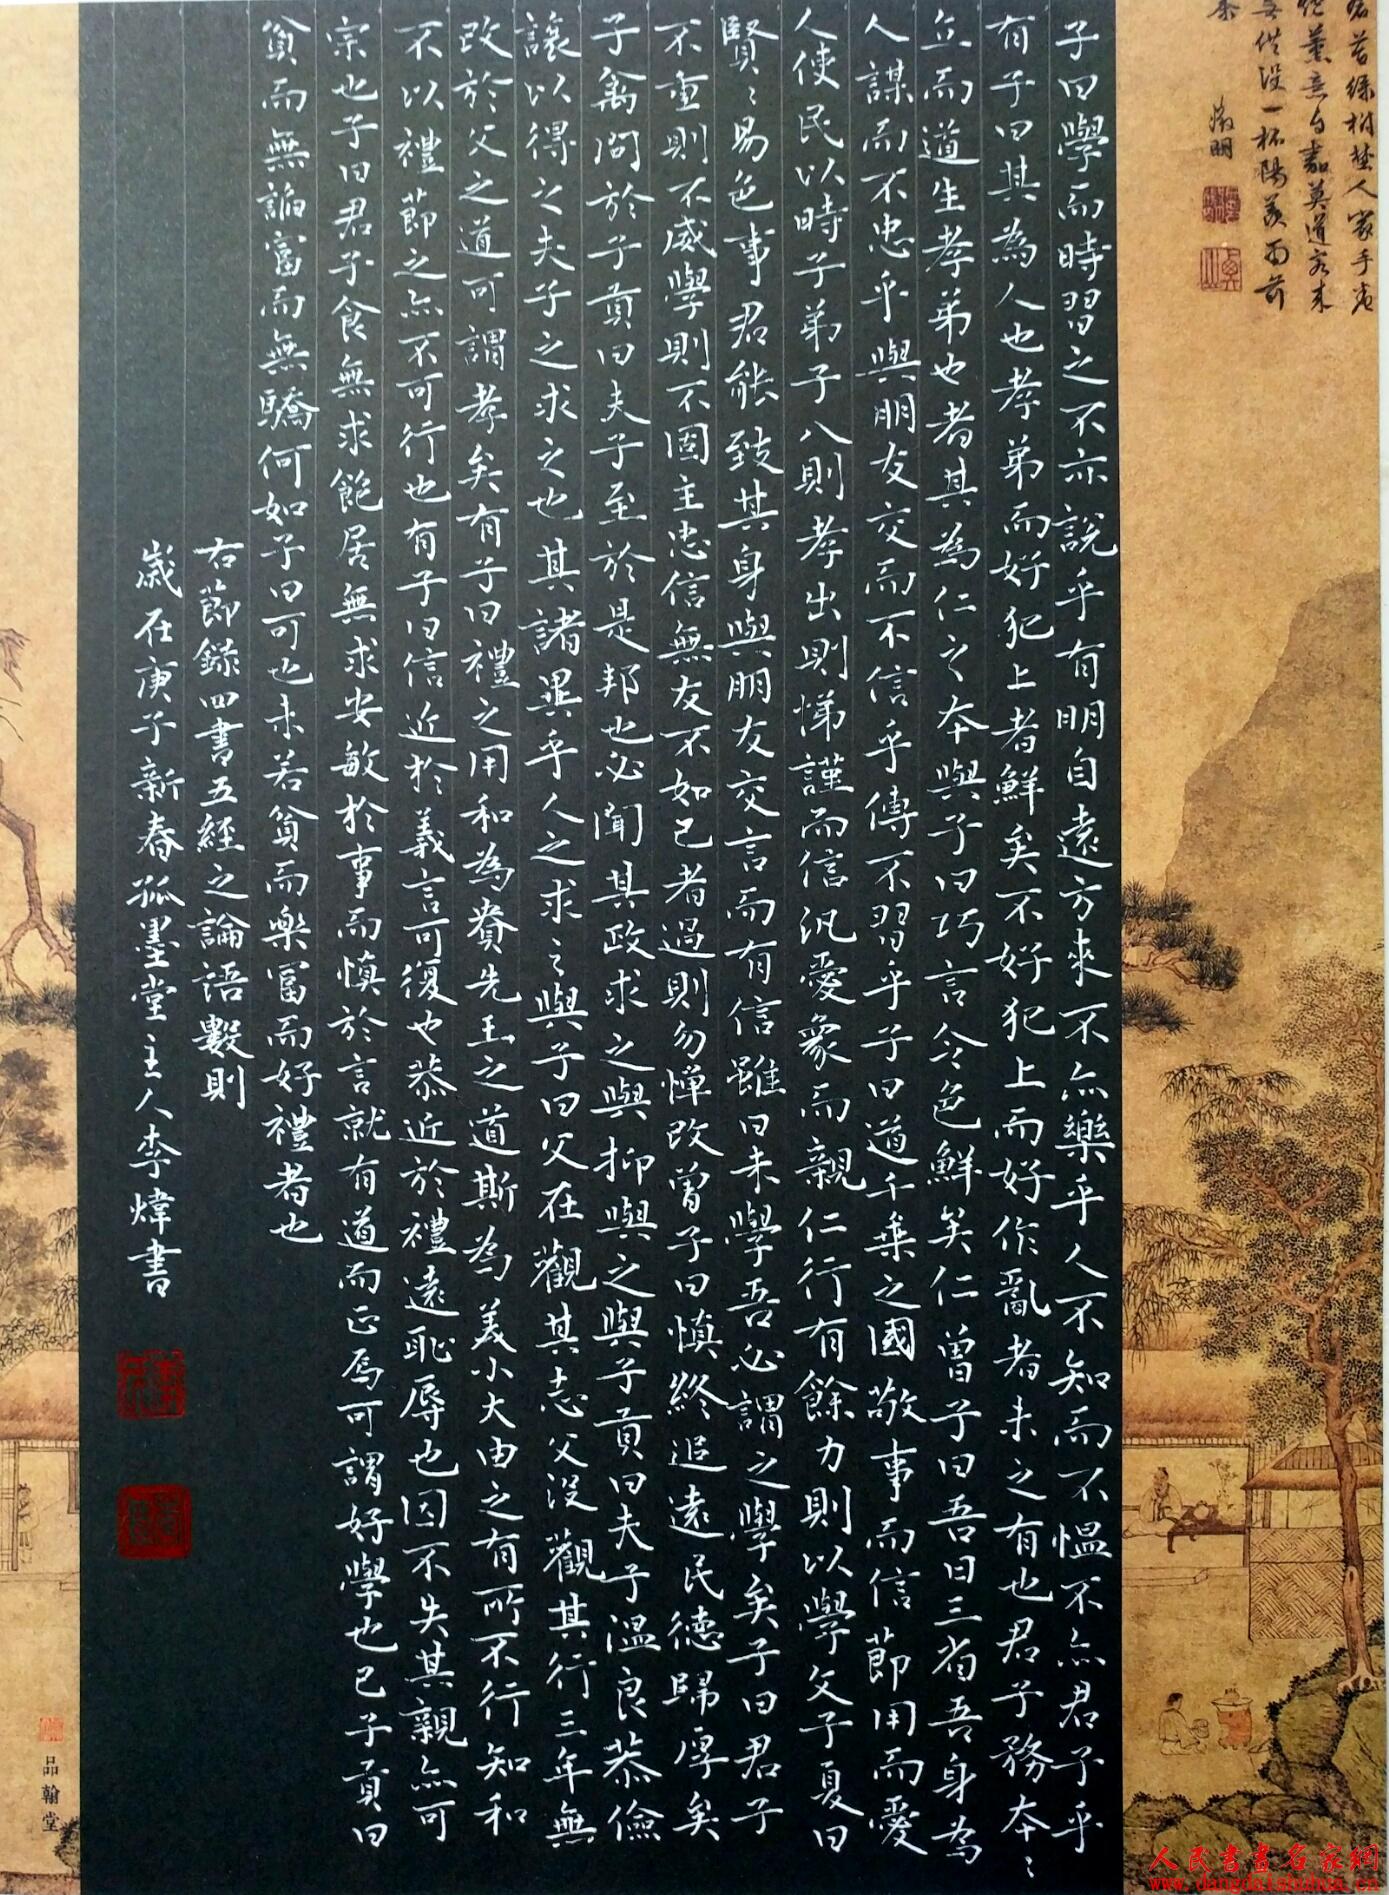 綠樹楚人家手煮
意自嘉莫道客來
無供設一杯陽羨雨前
茶
徵明
子曰學而時習之不亦說乎有朋自遠方來不亦樂乎人不知而不慍不亦君子乎
有子曰其為人也孝弟而好犯上者鮮矣不好犯上而好作亂者未之有也君子務本〻
立而道生孝弟也者其為仁之本與子曰巧言令色鮮矣仁曾子曰吾日三省吾身為
人謀而不忠乎與朋友交而不信乎傳不習乎子曰道千乘之國敬事而信節用而愛
人使民以時子弟子入則孝出則悌謹而信汎愛眾而親仁行有餘力則以學父子夏曰
賢〻易色事君能致其身與朋友交言而有信雖曰未學吾必謂之學矣子曰君子
不重則不威學則不固主忠信無友不如己者過則勿憚改曾子曰慎終追遠民德歸厚矣
子禽問於子貢曰夫子至於是邦也必聞其政求之與抑與之與子貢曰夫子溫良恭儉
讓以得之夫子之求之也其諸異乎人之求〻與子曰父在觀其志父沒觀其行三年無
改於父之道可謂孝矣有子曰禮之用和為貴先王之道斯為美小大由之有所不行知和
不以禮節之亦不可行也有子曰信近於義言可復也恭近於禮遠恥辱也因不失其親亦可
宗也子曰君子食無求飽居無求安敏於事而慎於言就有道而正焉可謂好學也已子貢曰
貧而無諂富而無驕何如子曰可也未若貧而樂富而好禮者也
右節錄四書五經之論語數則
歲在庚子新春孤墨堂主人李煒書
品翰堂
人民書畫名家網
www.dangdaishuhua.cn